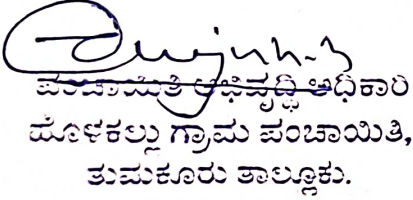 ಪಂಚಾಯಿತಿ ಅಭಿವೃದ್ಧಿ ಅಧಿಕಾರಿ
ಹೊಳಕಲ್ಲು ಗ್ರಾಮ ಪಂಚಾಯಿತಿ,
ತುಮಕೂರು ತಾಲ್ಲೂಕು.